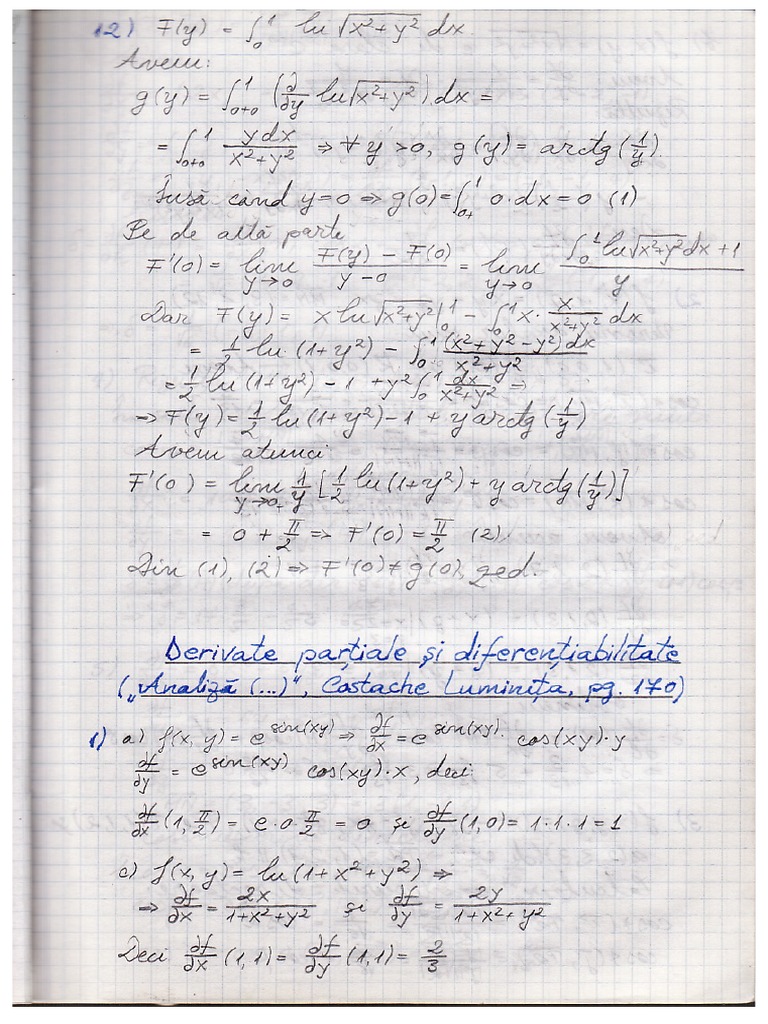 12) F(y) = ∫₀¹ ln √(x²+y²) dx
Avem:
g(y) = ∫₀₊₀¹ (∂/∂y ln√(x²+y²)) dx =
= ∫₀₊₀¹ y dx / (x²+y²) ⇒ ∀ y > 0, g(y) = arctg (1/y).
Însă când y=0 ⇒ g(0) = ∫₀₊¹ 0·dx = 0 (1)
Pe de altă parte
F'(0) = lim_{y→0} (F(y) − F(0)) / (y−0) = lim_{y→0} (∫₀¹ ln√(x²+y²) dx + 1) / y
Dar F(y) = x ln√(x²+y²) |₀¹ − ∫₀¹ x · x/(x²+y²) dx
= 1/2 ln (1+y²) − ∫₀¹ (x²+y²−y²) dx / (x²+y²)
= 1/2 ln (1+y²) − 1 + y² ∫₀¹ dx/(x²+y²) ⇒
⇒ F(y) = 1/2 ln (1+y²) − 1 + y arctg (1/y)
Avem atunci
F'(0) = lim_{y→0₊} 1/y [1/2 ln(1+y²) + y arctg (1/y)]
= 0 + π/2 ⇒ F'(0) = π/2 (2).
Din (1), (2) ⇒ F'(0) ≠ g(0), qed.
Derivate parțiale și diferențiabilitate
("Analiză (...)", Costache Luminița, pg. 170)
1) a) f(x, y) = e^{sin(xy)} ⇒ ∂f/∂x = e^{sin(xy)} · cos(xy)·y
∂f/∂y = e^{sin(xy)} cos(xy)·x, deci
∂f/∂x (1, π/2) = e·0·π/2 = 0 și ∂f/∂y (1,0) = 1·1·1 = 1
c) f(x, y) = ln (1 + x² + y²) ⇒
⇒ ∂f/∂x = 2x/(1+x²+y²) și ∂f/∂y = 2y/(1+x²+y²)
Deci ∂f/∂x (1,1) = ∂f/∂y (1,1) = 2/3